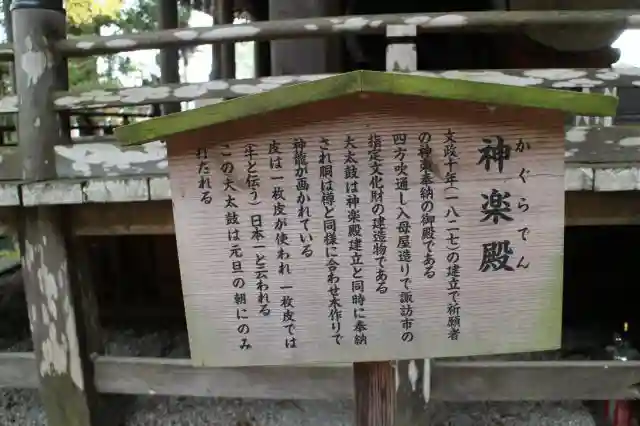 かぐらでん
神楽殿
文政十年(一八二七)の建立で祈願者
の神楽奉納の御殿である
四方吹通し入母屋造りで諏訪市の
指定文化財の建造物である
大太鼓は神楽殿建立と同時に奉納
され胴は樽と同様に合わせ木作りで
神龍が描かれている
皮は一枚皮が使われ 一枚皮では
(牛と伝う)日本一と云われる
この大太鼓は元旦の朝にのみ
打たれる